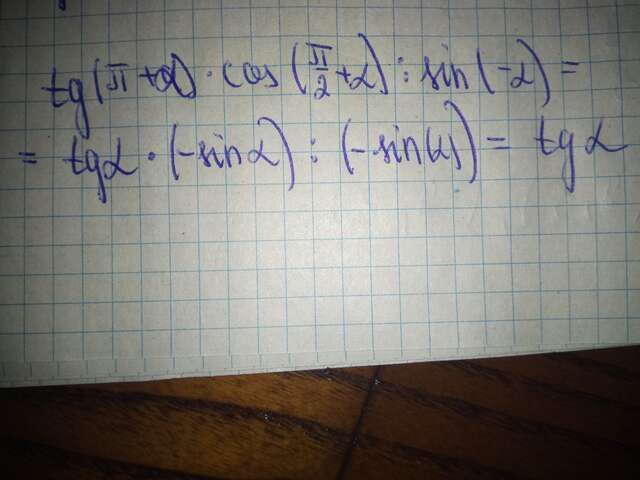 tg(π+α)·cos(π/2+α):sin(-α)=
= tgα·(-sinα):(-sin(α))= tgα